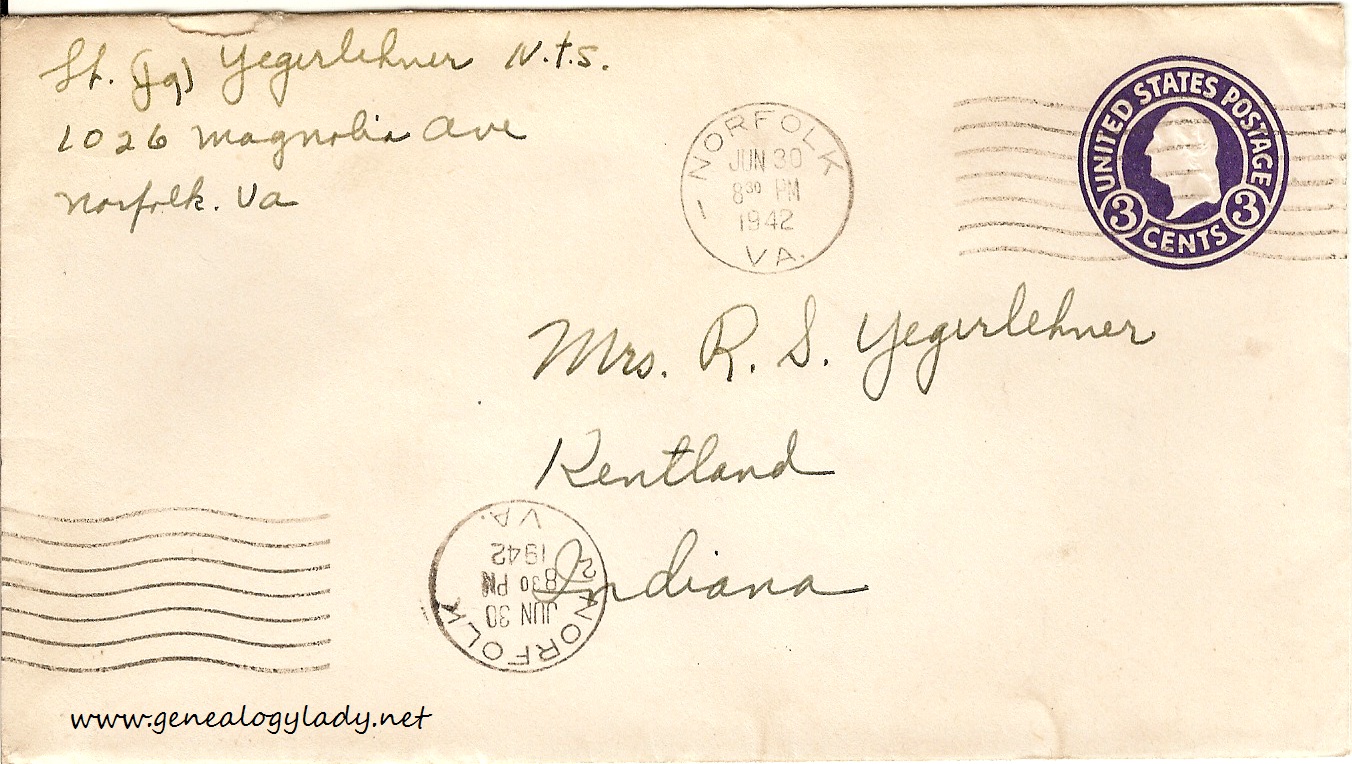 Lt. (jg) Yegerlehner N.T.S.
1026 Magnolia Ave
Norfolk. Va
NORFOLK
1
JUN 30
8 30 PM
1942
VA.
UNITED STATES POSTAGE
3 CENTS 3
Mrs. R. S. Yegerlehner
Kentland
Indiana
NORFOLK
2
JUN 30
8 30 PM
1942
VA.
www.genealogylady.net